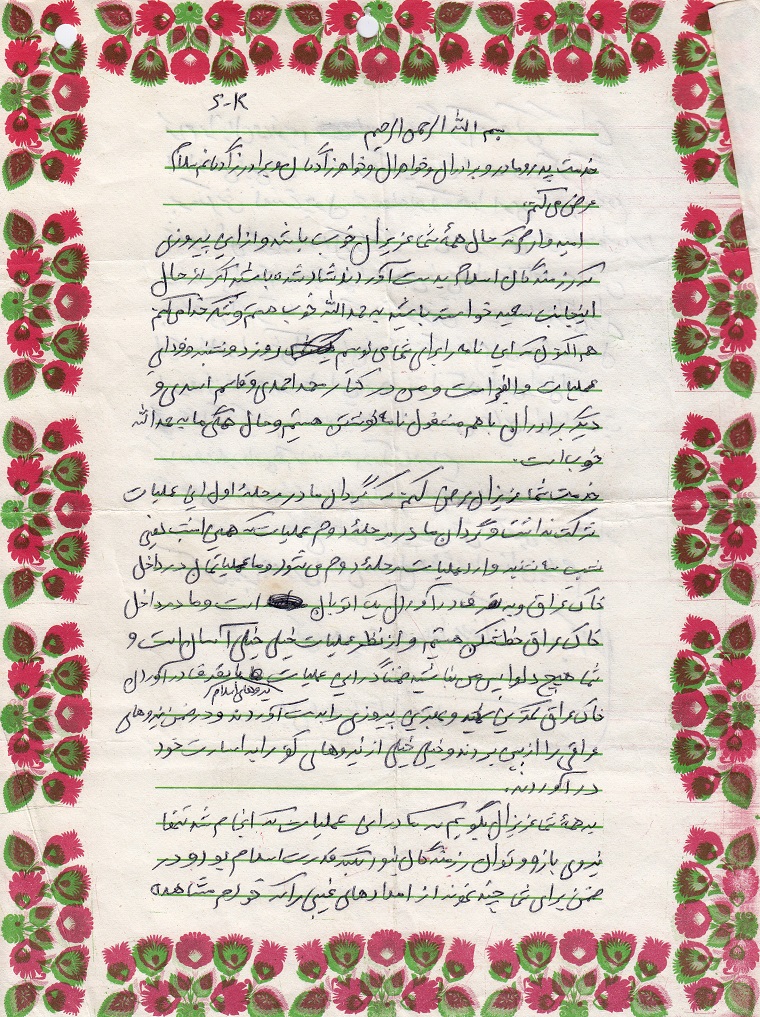 S-K
بسم الله الرحمن الرحیم
خدمت پدر و مادر و برادران و خواهران و خواهرزادگان و برادرزادگانم سلام
عرض می کنم
امیدوارم که حال همهٔ شما عزیزان خوب باشد و از این پیروزی
که رزمندگان اسلام بدست آوردند شاد شده باشید اگر از حال
اینجانب سعید خواسته باشید بحمدالله خوب هستم و شکر خدا می کنم
هم اکنون که این نامه را برای شما می نویسم روز دوشنبه و فردای
عملیات والفجر است و من در کنار محمد احمدی و قاسم اسدی و
دیگر برادران با هم مشغول نامه نوشتن هستیم و حال همگی ما بحمدالله
خوب است.
خدمت شما عزیزان عرض کنم که گردان ما در مرحلهٔ اول این عملیات
شرکت نداشت و گردان ما در مرحلهٔ دوم عملیات که همین امشب یعنی
شب سه شنبه وارد عملیات مرحلهٔ دوم می شود و ما عملیاتمان در داخل
خاک عراق و به در آوردن یک اتوبان است و ما در داخل
خاک عراق هستیم و از نظر عملیات خیلی خیلی آسان است و
شما هیچ دلواپس من نباشید ضمناً در این عملیات در آوردن
نیروهای اسلام
خاک عراق و بهترین پیروزی را بدست آوردند و در ضمن نیروهای
عراقی را از بین بردند و خیلی خیلی از نیروهای او را به اسارت خود
در آوردند.
به همهٔ شما عزیزان بگویم که ما در این عملیات که انجام شد تنها
نیروی بازو و توان رزمندگان نبود بلکه قدرت اسلام بود و در
ضمن برای شما چند نمونه از امدادهای غیبی را که خودم مشاهده